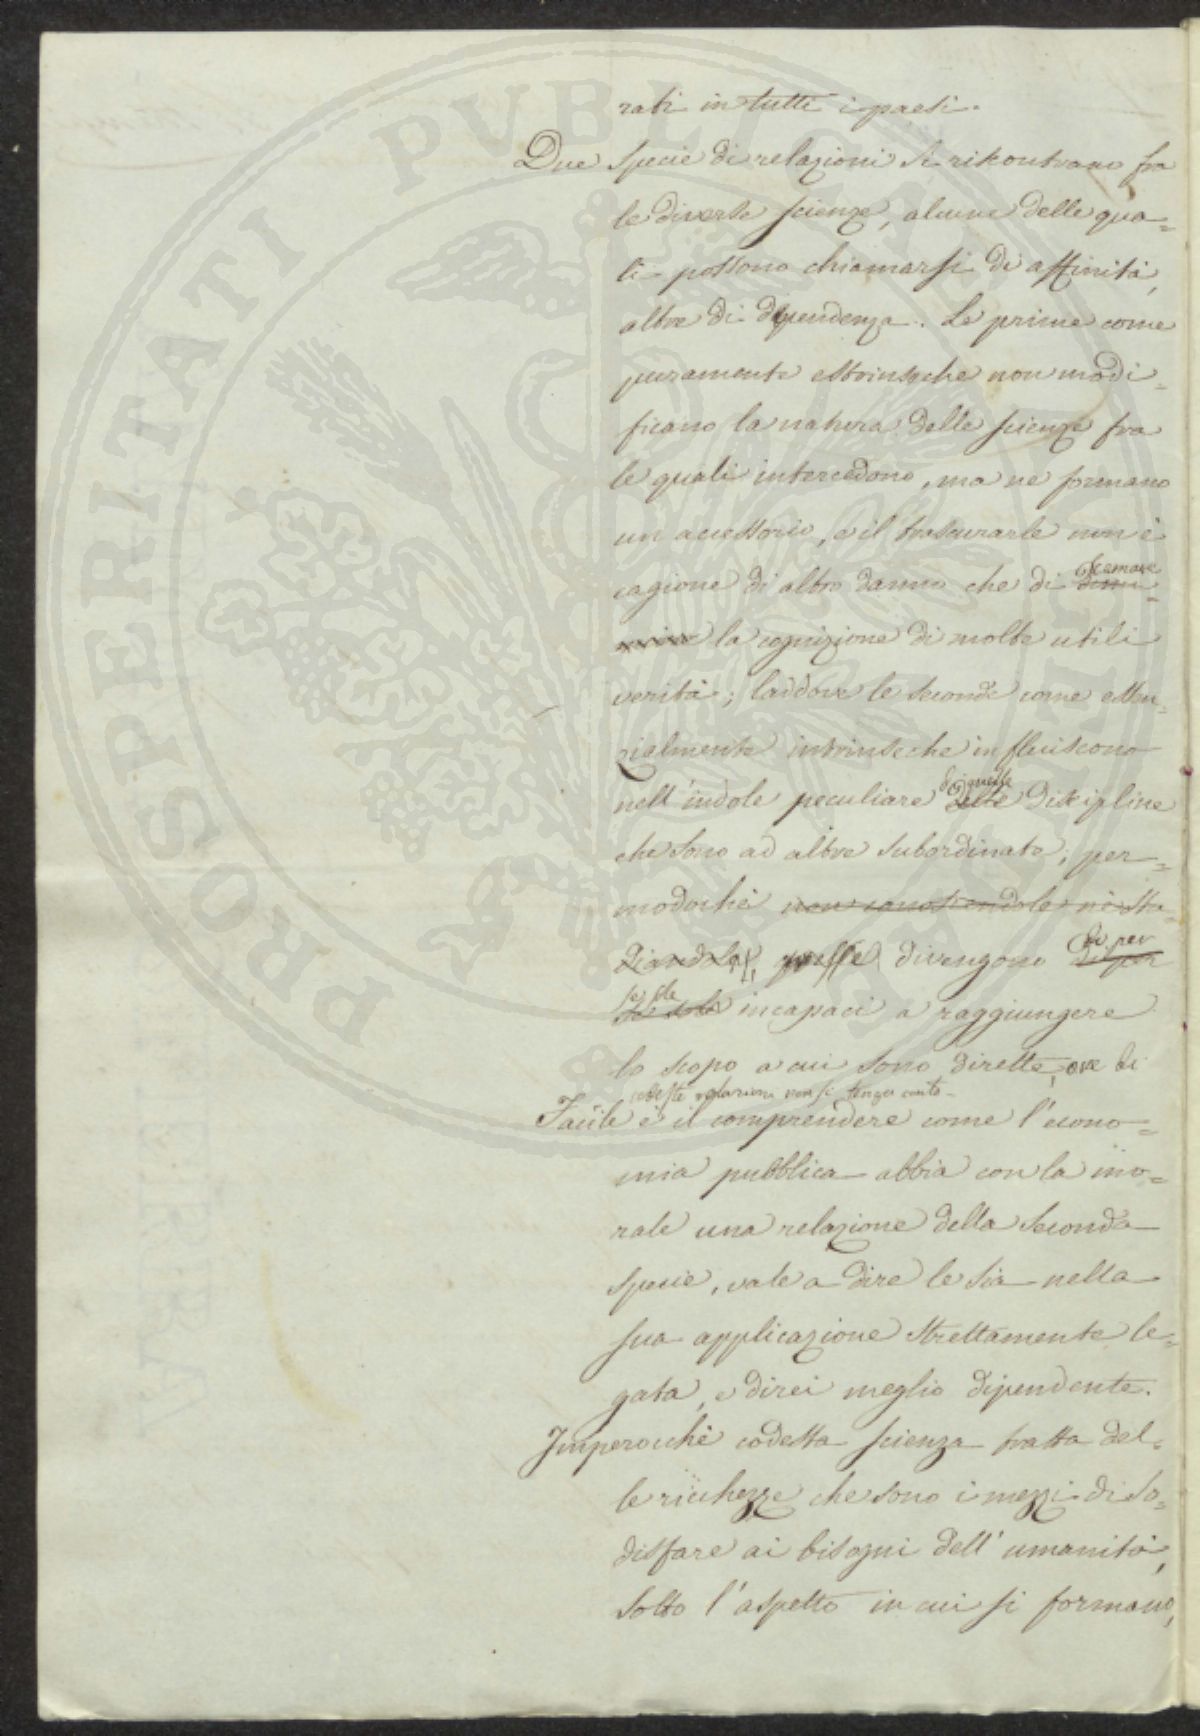 PROSPERITATI PUBLICAE AUGENDAE
rati in tutti i paesi.
Due specie di relazioni si riscontrano fra
le diverse scienze, alcune delle qua=
li possono chiamarsi di affinità,
altre di dipendenza. Le prime come
puramente estrinseche non modi=
ficano la natura delle scienze fra
le quali intercedono, ma ne formano
un accessorio, e il trascurarle non è
scemare
cagione di altro danno che di dimi=
nuire la cognizione di molte utili
verità; laddove le seconde come essen=
zialmente intrinseche influiscono
di quelle
nell'indole peculiare delle discipline
che sono ad altre subordinate; per=
modochè non conoscendole nè stu=
di per
diandole, divengono di per
se sole
se sole incapaci a raggiungere
lo scopo a cui sono dirette, ove di
codeste relazioni non si tenga conto.
Facile è il comprendere come l'econo=
mia pubblica abbia con la mo=
rale una relazione della seconda
specie, vale a dire le sia nella
sua applicazione strettamente le=
gata, e direi meglio dipendente.
Imperocchè codesta scienza tratta del=
le ricchezze che sono i mezzi di so=
disfare ai bisogni dell'umanità,
sotto l'aspetto in cui si formano,